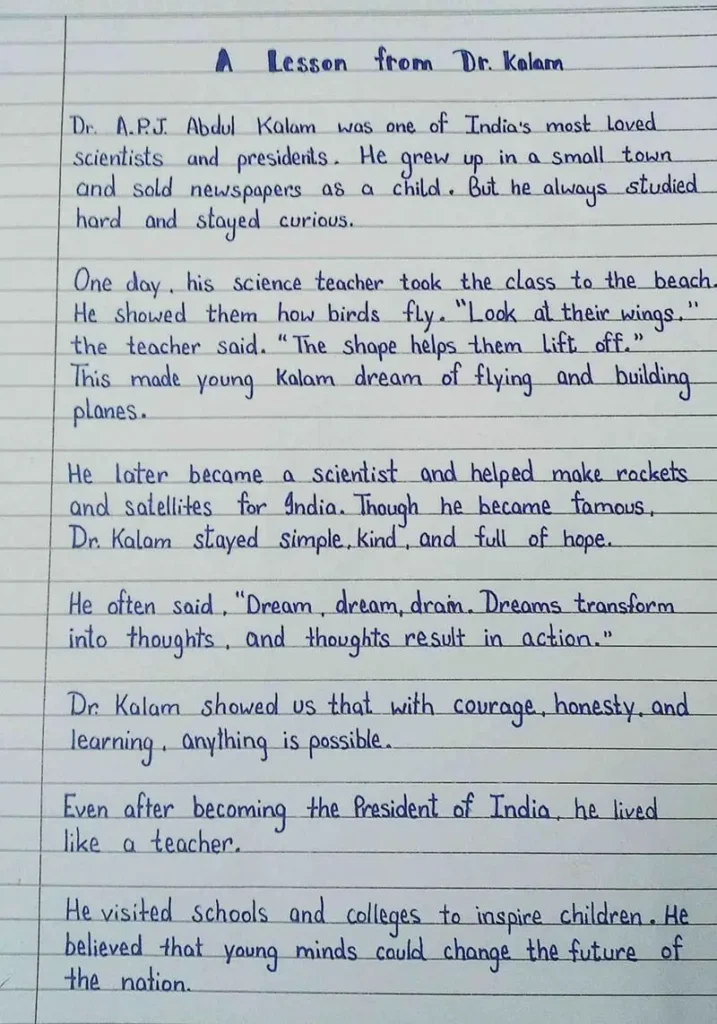 A Lesson from Dr. Kalam
Dr. A.P.J. Abdul Kalam was one of India's most loved
scientists and presidents. He grew up in a small town
and sold newspapers as a child. But he always studied
hard and stayed curious.
One day, his science teacher took the class to the beach.
He showed them how birds fly. "Look at their wings,"
the teacher said. "The shape helps them lift off."
This made young Kalam dream of flying and building
planes.
He later became a scientist and helped make rockets
and satellites for India. Though he became famous,
Dr. Kalam stayed simple, kind, and full of hope.
He often said, "Dream, dream, draim. Dreams transform
into thoughts, and thoughts result in action."
Dr. Kalam showed us that with courage, honesty, and
learning, anything is possible.
Even after becoming the President of India, he lived
like a teacher.
He visited schools and colleges to inspire children. He
believed that young minds could change the future of
the nation.